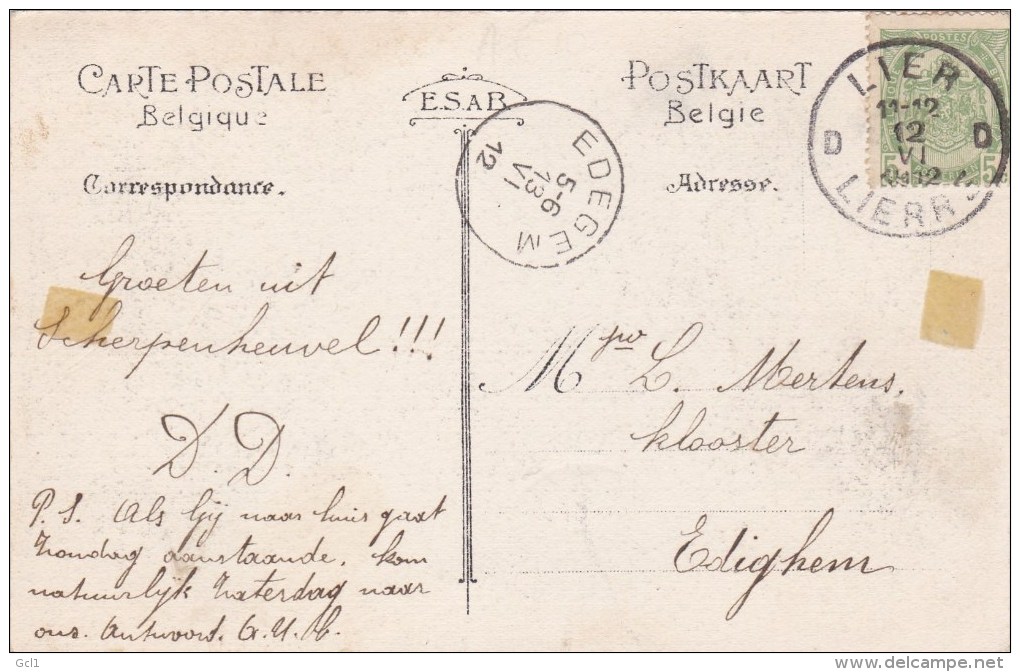 CARTE POSTALE
Belgique
E.S.AR.
POSTKAART
Belgie
Correspondance.
Adresse.
EDEGEM
5-6
13
VI
12
POSTES
LIER
11-12
D 12 D
VI
1912
LIERRE
5
Groeten uit
Scherpenheuvel!!!
D. D.
P. S. Als Gij naar huis gaat
Zondag aanstaande, kom
natuurlijk Zaterdag naar
ons. Antwoord. A.U.B.
Mejw L. Mertens,
klooster
Edighem
Gcl1
www.delcampe.net